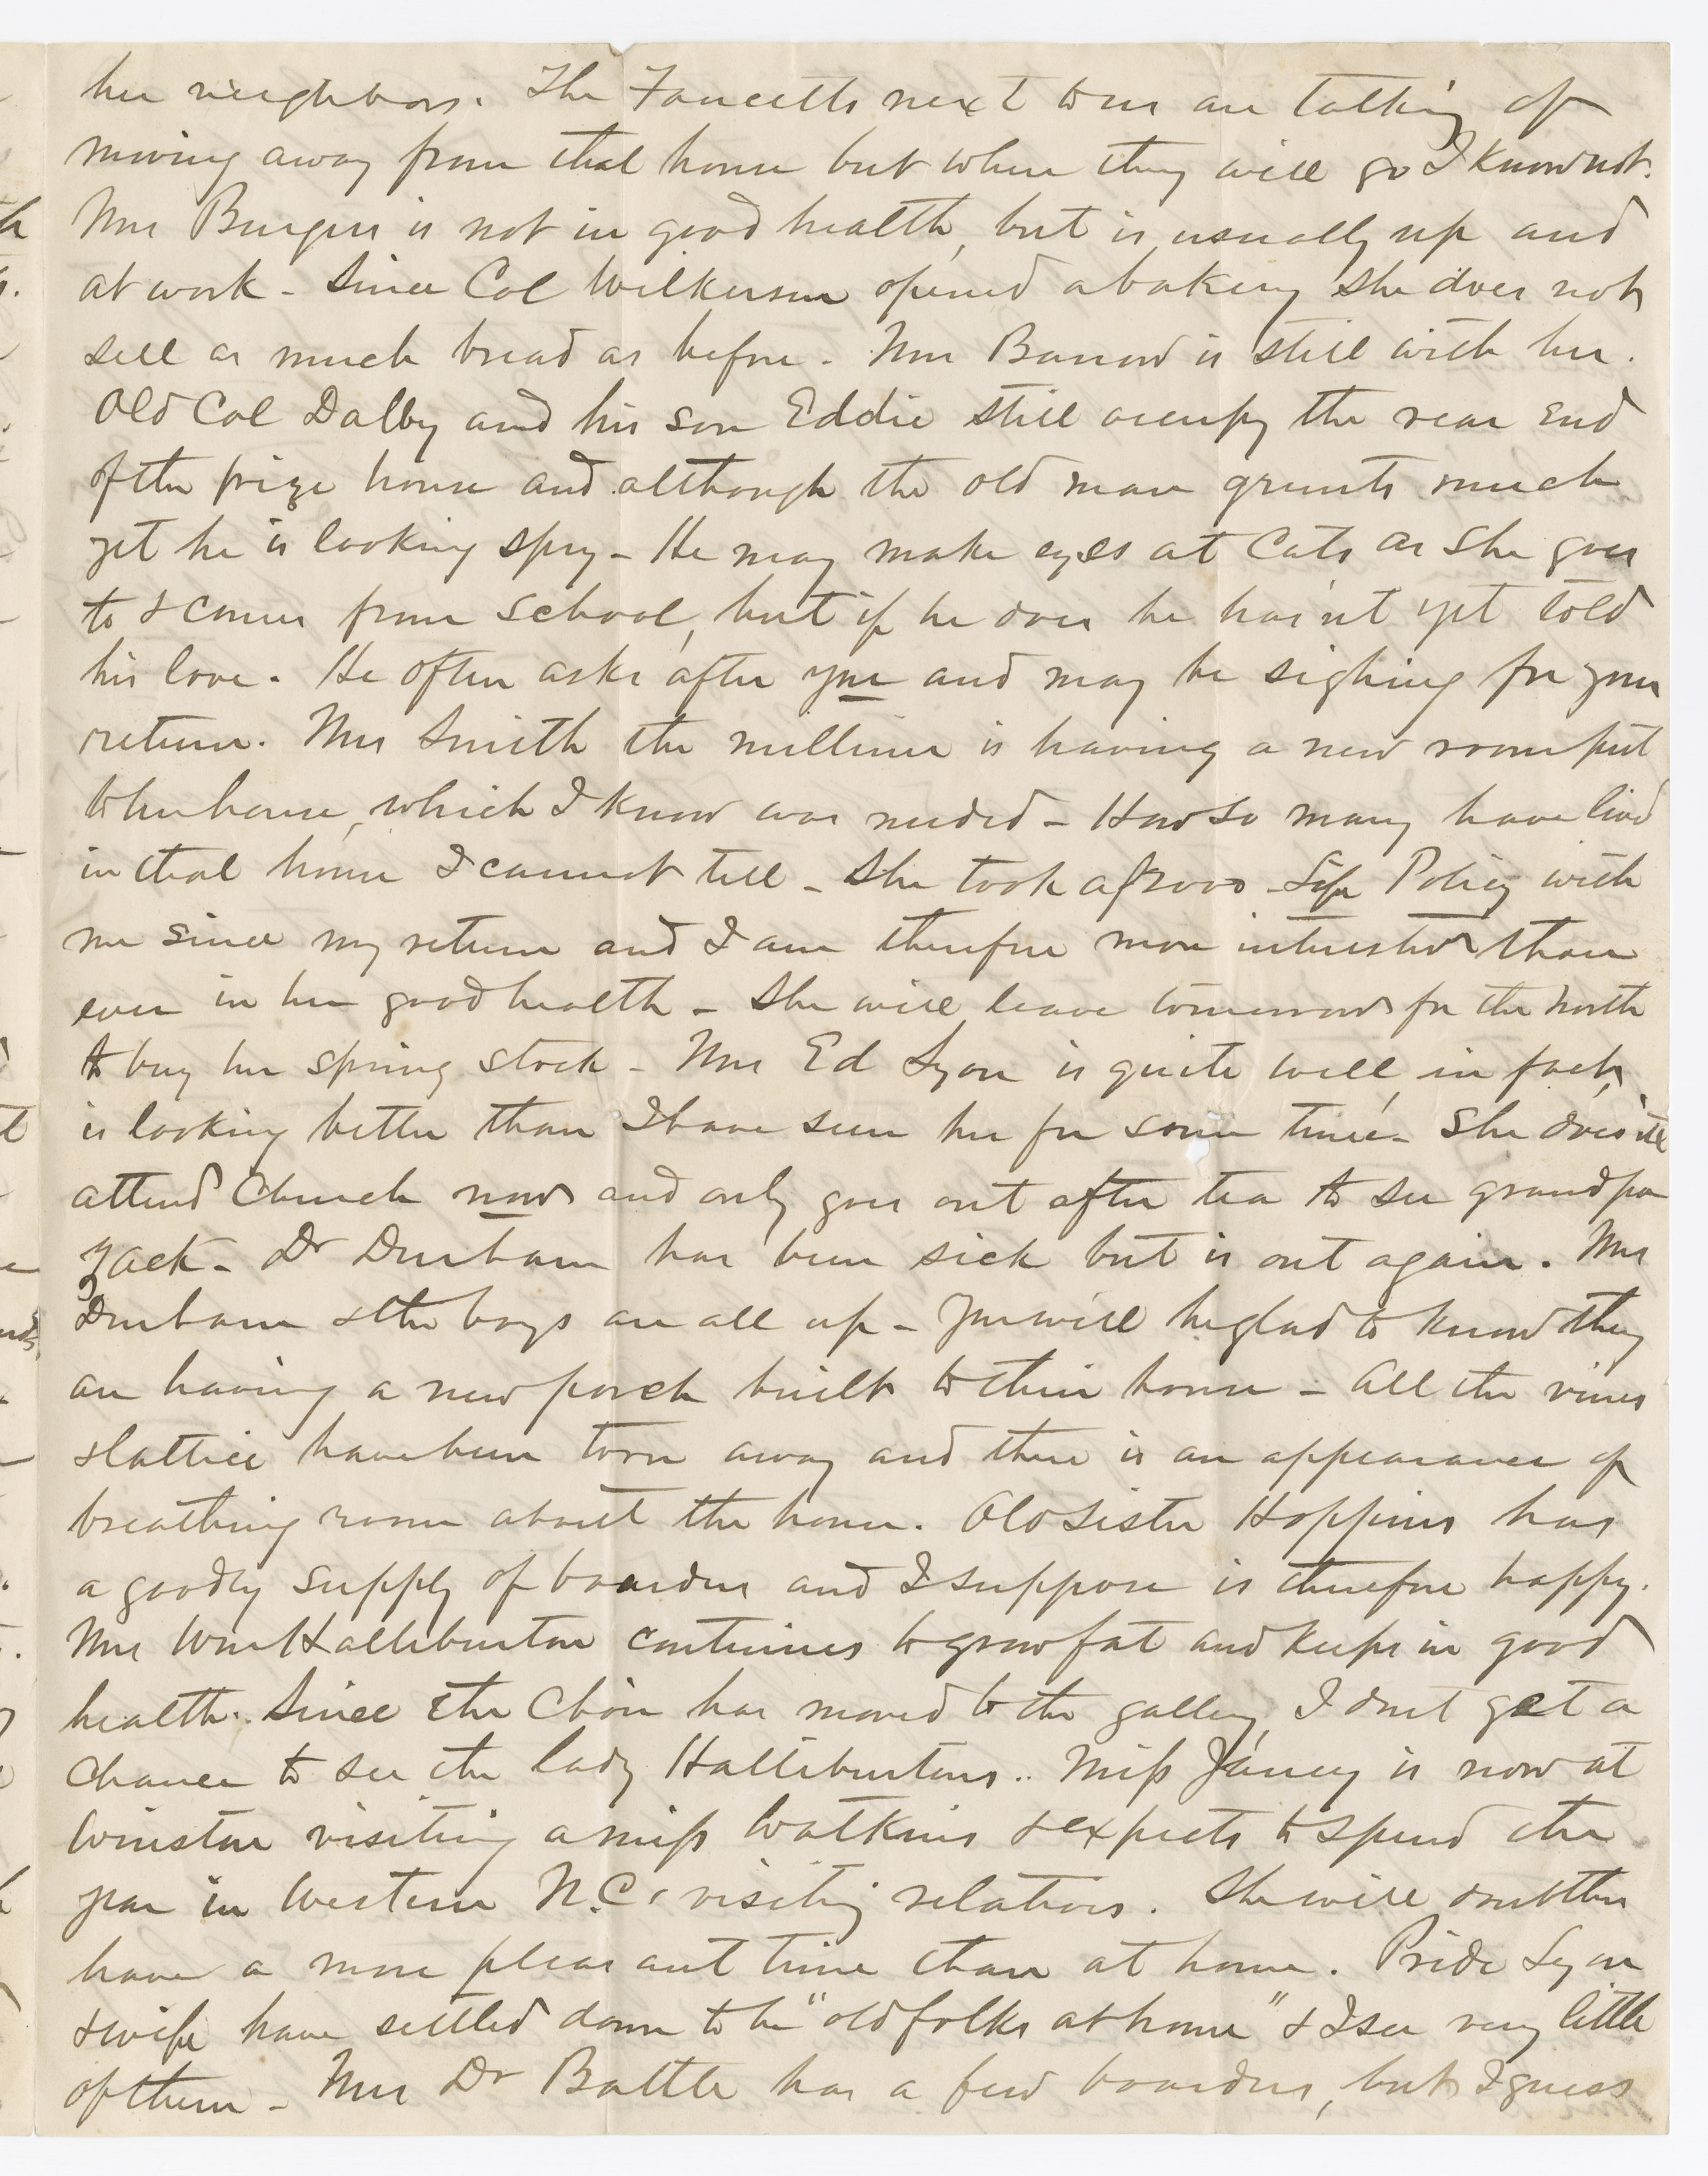 her neighbors. The Faucetts next to us are talking of
moving away from that house but where they will go I know not.
Mrs Burgess is not in good health, but is usually up and
at work - Since Col Wilkerson opened a bakery she does not
sell as much bread as before - Mrs Barrow is still with her.
Old Col Dalby and his son Eddie still occupy the rear end
of the prize house and although the old man grunts much
yet he is looking spry - He may make eyes at Cats as she goes
to & comes from school, but if he does he has'nt yet told
his love. He often asks after you and may be sighing for your
return. Mrs Smith the milliner is having a new room put
to her house, which I know was needed - How so many have lived
in that house I cannot tell - She took a $2000 Life Policy with
me since my return and I am therefore more interested than
ever in her good health - She will leave tomorrow for the North
to buy her spring stock - Mrs Ed Lyon is quite well, in fact,
is looking better than I have seen her for some time - She does'nt
attend Church now and only goes out after tea to see grandpa
Zack - Dr Durham has been sick but is out again. Mrs
Durham & the boys are all up - You will be glad to know they
are having a new porch built to their house - All the vines
& lattice have been torn away and there is an appearance of
breathing room about the house. Old Sister Hoppins has
a goodly supply of boarders and I suppose is therefore happy.
Mrs Wm Halliburton continues to grow fat and keeps in good
health. Since the Choir has moved to the gallery, I dont get a
chance to see the lady Halliburtons.. Miss Jancy is now at
Winston visiting a miss Watkins & expects to spend the
year in Western N.C. visiting relatives. She will doubtless
have a more pleasant time than at home. Pride Lyon
& wife have settled down to be "old folks at home" & I see very little
of them - Mrs Dr Battle has a few boarders, but I guess